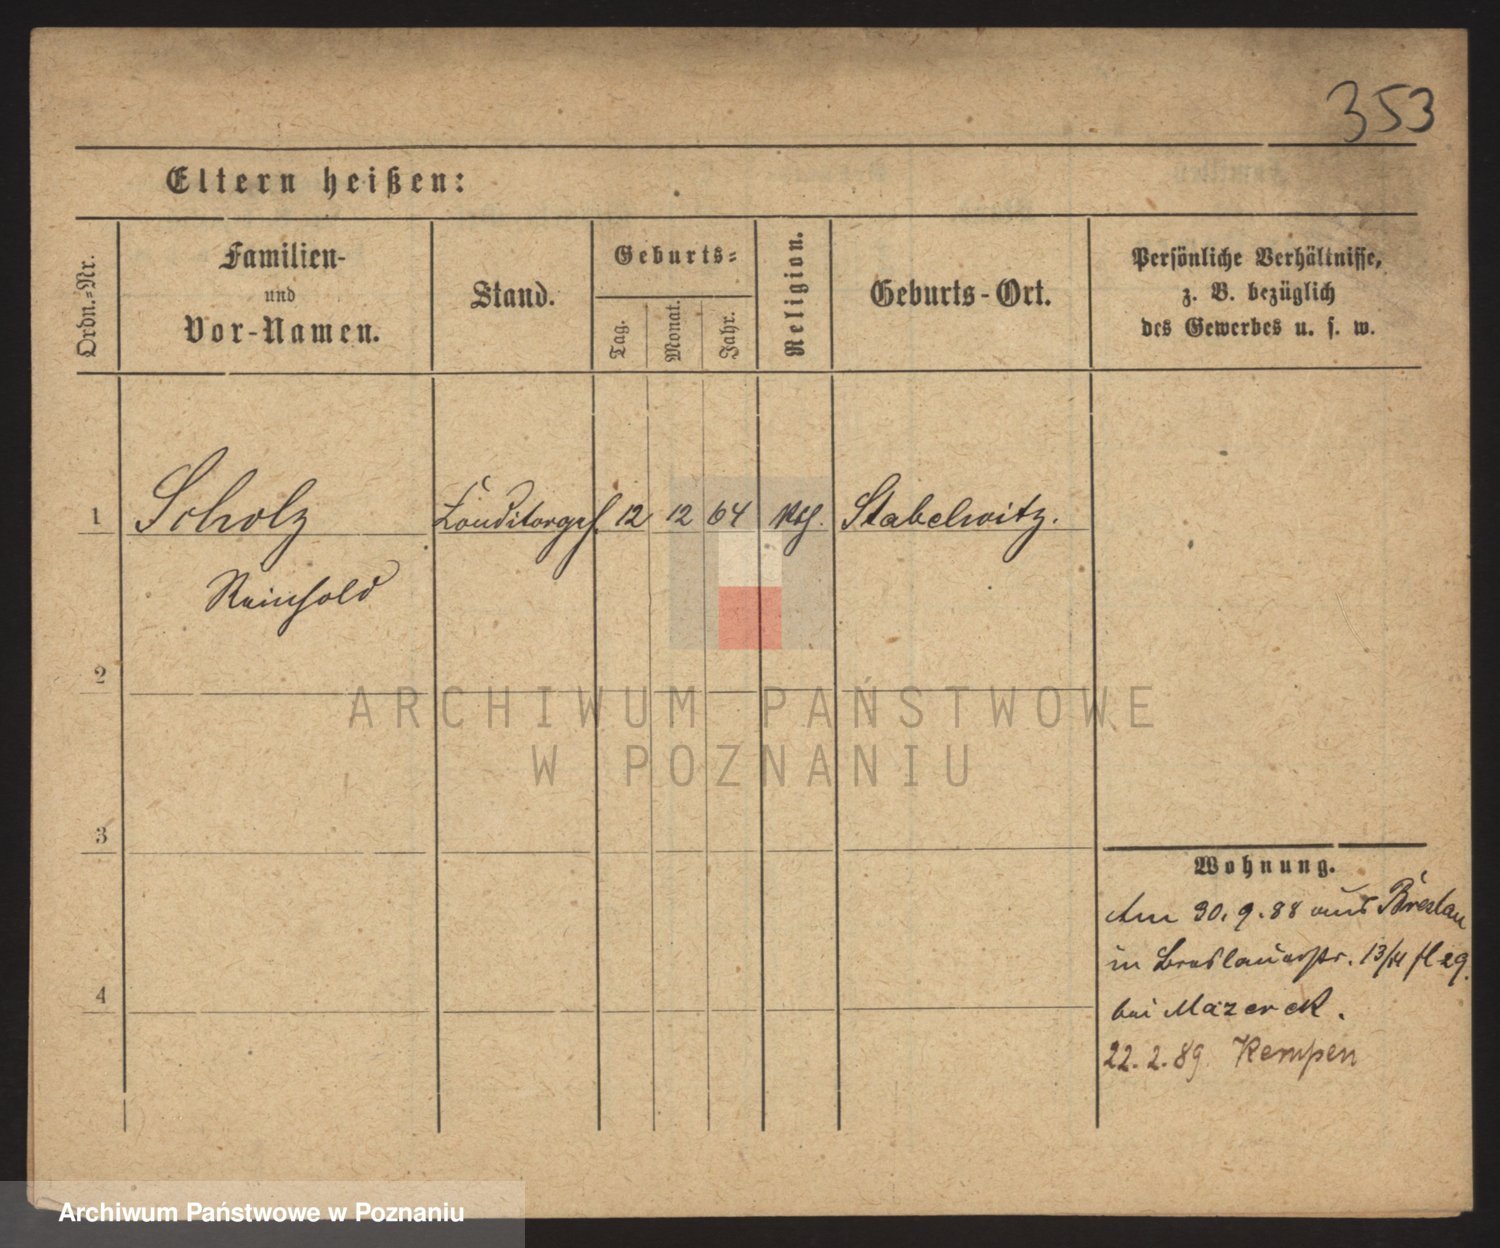 353
Eltern heißen:
Ordn.-Nr.
Familien-
und
Vor-Namen.
Stand.
Geburts-
Tag.
Monat.
Jahr.
Religion.
Geburts-Ort.
Persönliche Verhältnisse,
z. B. bezüglich
des Gewerbes u. s. w.
1 Scholz Conditorgeh. 12 12 64 Kth. Stabelwitz.
Reinhold
2
3
4
Wohnung.
Am 30.9.88 aus Breslau
in Breslauerstr. 13/14
bei Mazereck.
22.2.89. Kempen
ARCHIWUM PAŃSTWOWE
W POZNANIU
Archiwum Państwowe w Poznaniu